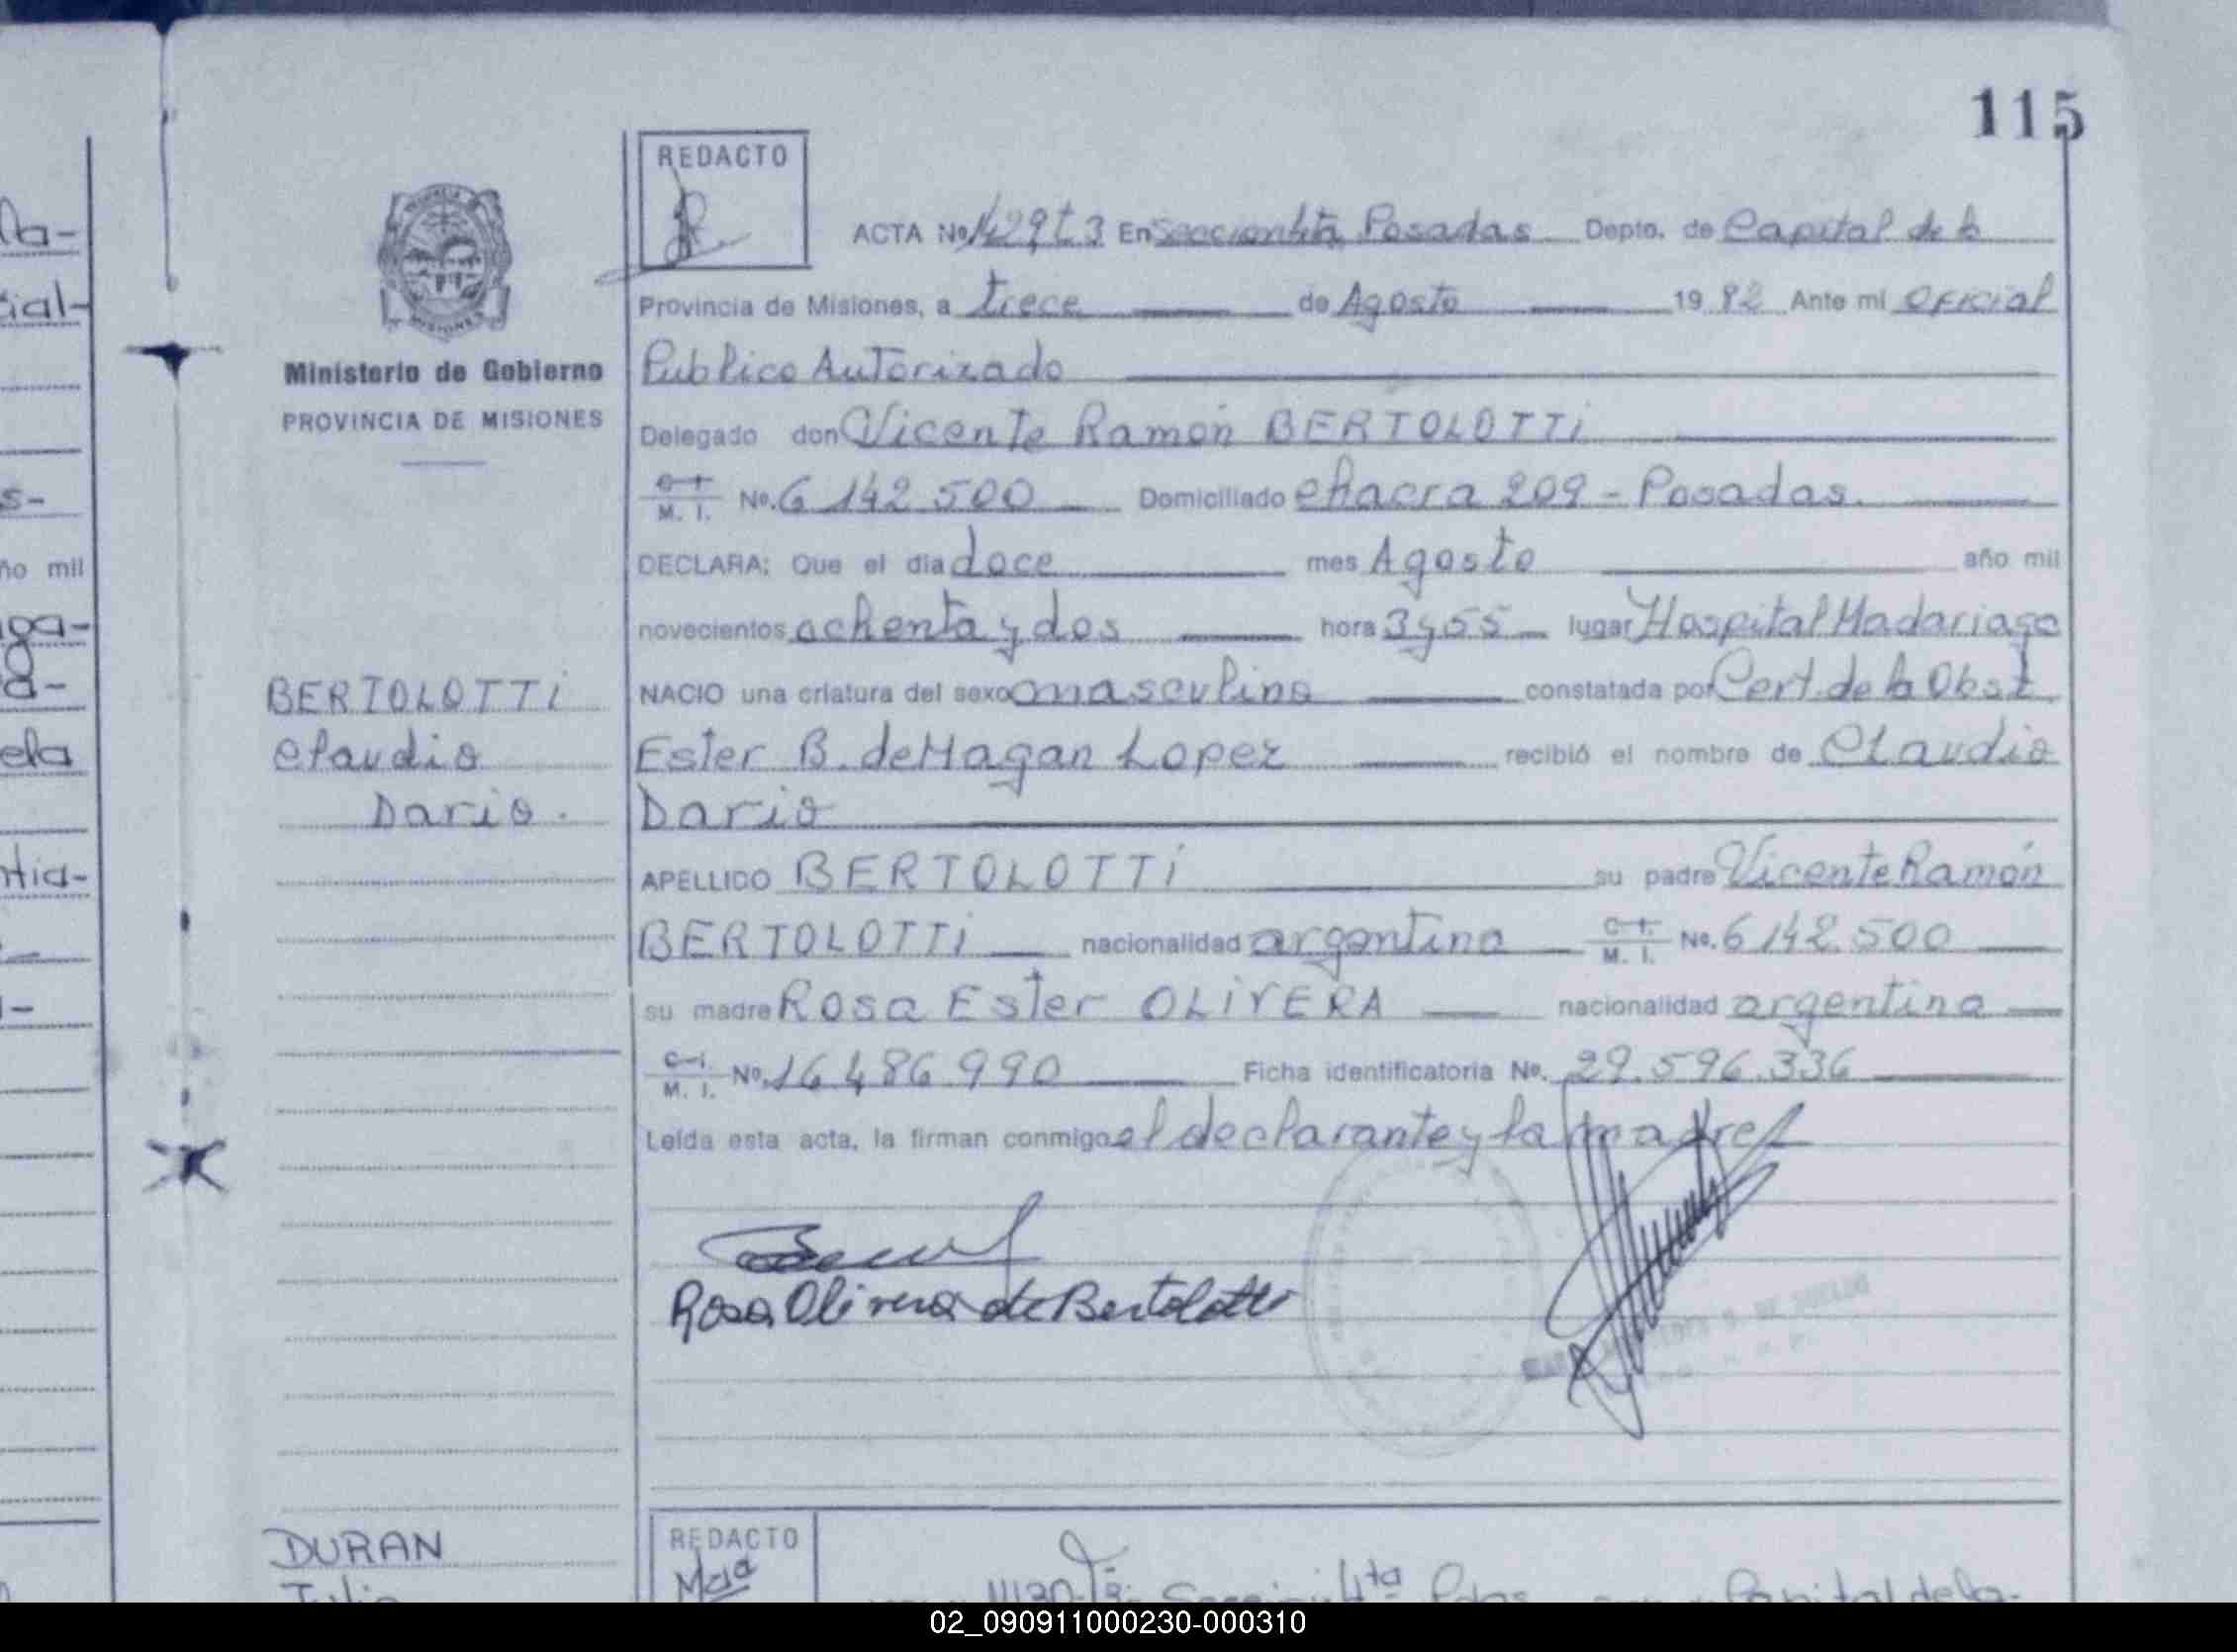 115
REDACTO
ACTA No. 1429 t 3 En Seccion 4ta Posadas Depto. de Capital de la
Provincia de Misiones, a trece de Agosto 1982 Ante mi Oficial
Ministerio de Gobierno
Publico Autorizado
PROVINCIA DE MISIONES
Delegado don Vicente Ramón BERTOLOTTi
M. I. No. 6 142 500 Domiciliado chacra 209 - Posadas.
DECLARA: Que el dia doce mes Agosto año mil
novecientos ochenta y dos hora 3 y 55 lugar Hospital Madariaga
BERTOLOTTi
NACIO una criatura del sexo masculino constatada por Cert. de la Obst.
Claudio
Ester B. de Magan Lopez recibió el nombre de Claudio
Dario.
Dario
APELLIDO BERTOLOTTi su padre Vicente Ramón
BERTOLOTTi nacionalidad argentina C. I. M. I. No. 6 142.500
su madre Rosa Ester OLiVERA nacionalidad argentina
C. I. M. I. No. 16 486 990 Ficha identificatoria No. 29.596.336
Leída esta acta, la firman conmigo el declarante y la madre
Rosa Olivera de Bertolotti
DURAN
Julio
REDACTO
Sección 4ta Pdas. Capital de la
ño mil
02_090911000230-000310